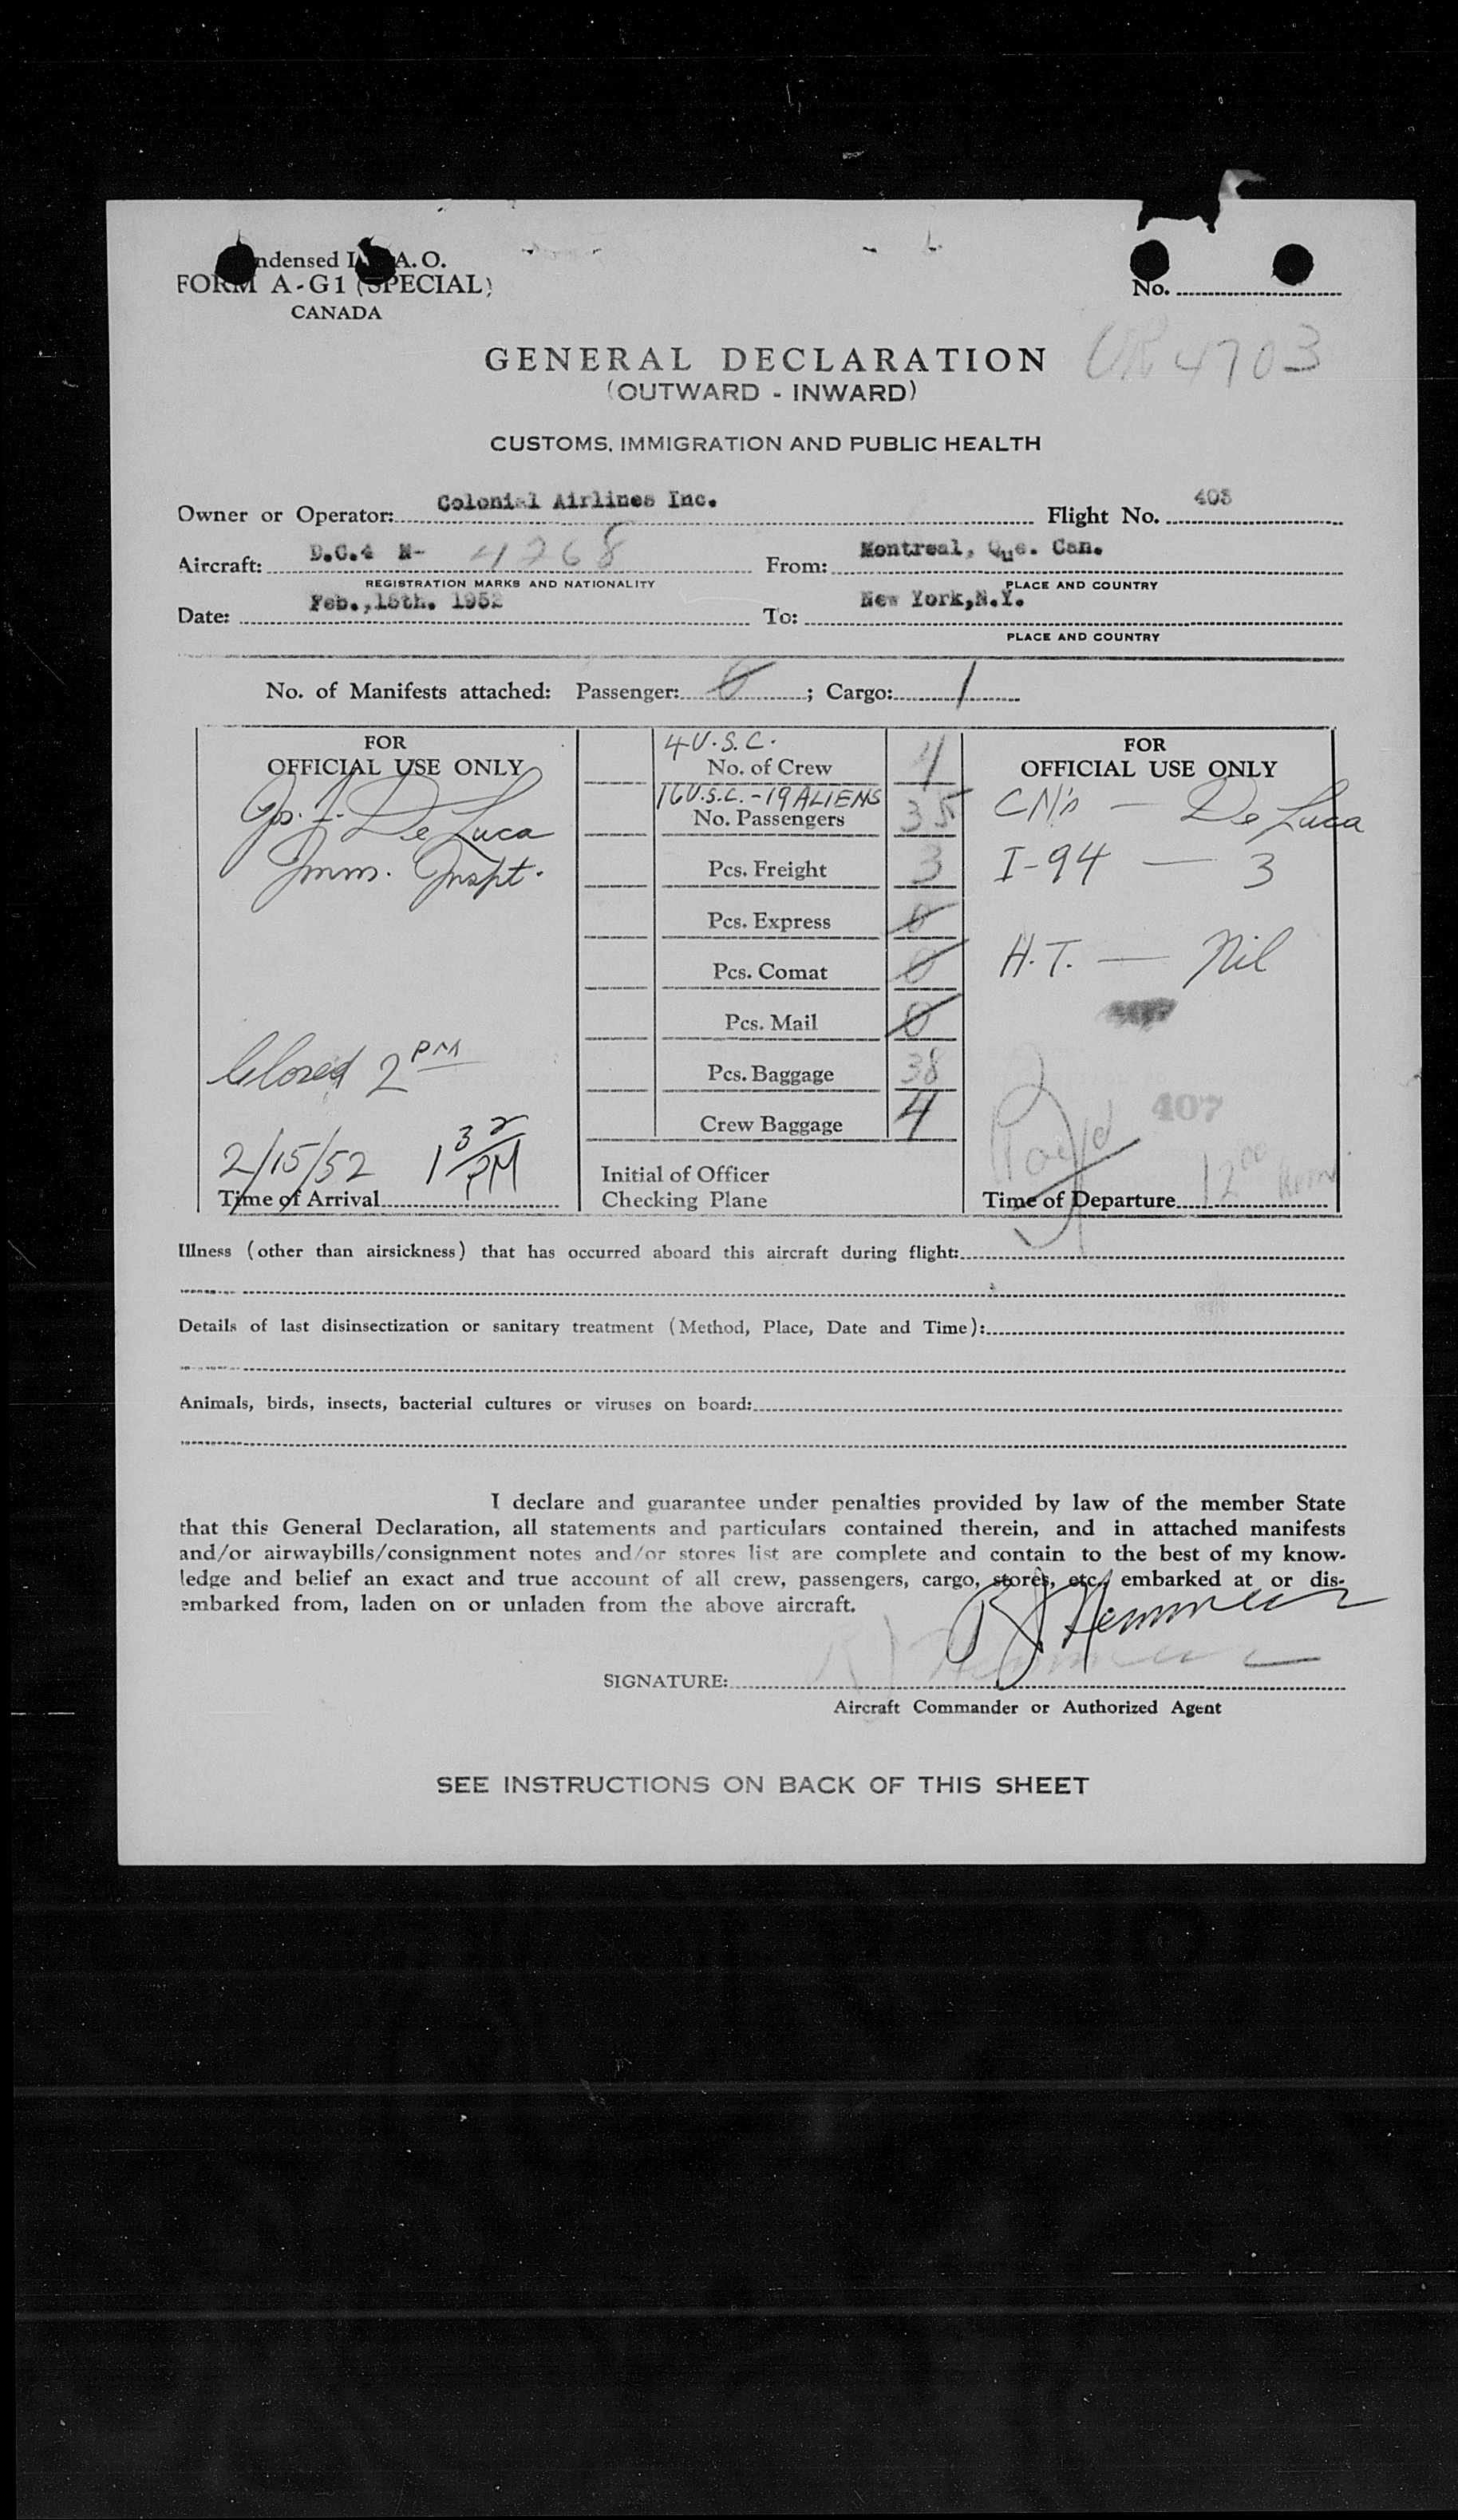 ndensed I A.O.
FORM A-G1 (SPECIAL)
CANADA
No.
4703
GENERAL DECLARATION
(OUTWARD - INWARD)
CUSTOMS, IMMIGRATION AND PUBLIC HEALTH
Owner or Operator: Colonial Airlines Inc. Flight No. 403
Aircraft: D.C.4 N- 4268 From: Montreal, Que. Can.
REGISTRATION MARKS AND NATIONALITY PLACE AND COUNTRY
Date: Feb.,15th. 1952 To: New York,N.Y.
PLACE AND COUNTRY
No. of Manifests attached: Passenger: 0 ; Cargo: 1
FOR
OFFICIAL USE ONLY
De Luca
Imm. Inspt.
Closed 2 PM
2/15/52 1 32 PM
Time of Arrival
4 U.S.C.
No. of Crew 4
16 U.S.C. - 19 ALIENS
No. Passengers 35
Pcs. Freight 3
Pcs. Express 0
Pcs. Comat 0
Pcs. Mail 0
Pcs. Baggage 38
Crew Baggage 4
Initial of Officer
Checking Plane
FOR
OFFICIAL USE ONLY
CM's — De Luca
I-94 — 3
H.T. — Nil
407
Time of Departure 12 00
Illness (other than airsickness) that has occurred aboard this aircraft during flight:
Details of last disinsectization or sanitary treatment (Method, Place, Date and Time):
Animals, birds, insects, bacterial cultures or viruses on board:
I declare and guarantee under penalties provided by law of the member State
that this General Declaration, all statements and particulars contained therein, and in attached manifests
and/or airwaybills/consignment notes and/or stores list are complete and contain to the best of my know-
ledge and belief an exact and true account of all crew, passengers, cargo, stores, etc., embarked at or dis-
embarked from, laden on or unladen from the above aircraft.
SIGNATURE:
Aircraft Commander or Authorized Agent
SEE INSTRUCTIONS ON BACK OF THIS SHEET